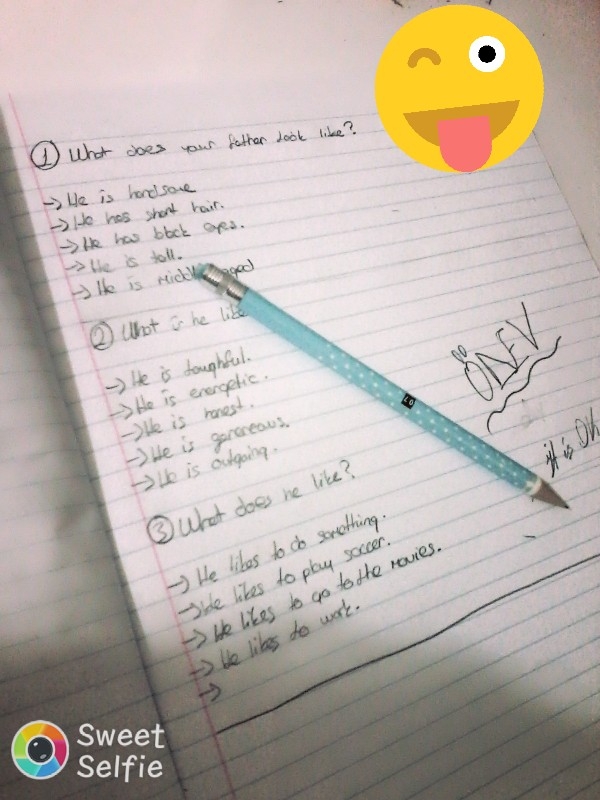 ① What does your father look like?
→ He is handsome
→ He has short hair.
→ He has black eyes.
→ He is tall.
→ He is middle aged
② What is he like
→ He is doughful.
→ He is energetic.
→ He is honest.
→ He is genereous.
→ He is outgoing.
③ What does he like?
→ He likes to do something.
→ He likes to play soccer.
→ He likes to go to the movies.
→ He likes to work.
→
ÖDEV
it is OK
Sweet
Selfie